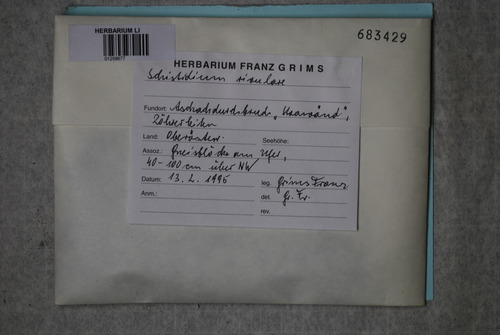 HERBARIUM LI
683429
HERBARIUM FRANZ GRIMS
Schistidium rivulare
Fundort: Aschachdurchbruch,
Land: Oberösterr. Seehöhe:
Assoz.: Gneisblöcke am Ufer,
40-100 cm über NW
Datum: 13. 2. 1996 leg. Grims Franz
Anm.: det. Gr. Fr.
rev.